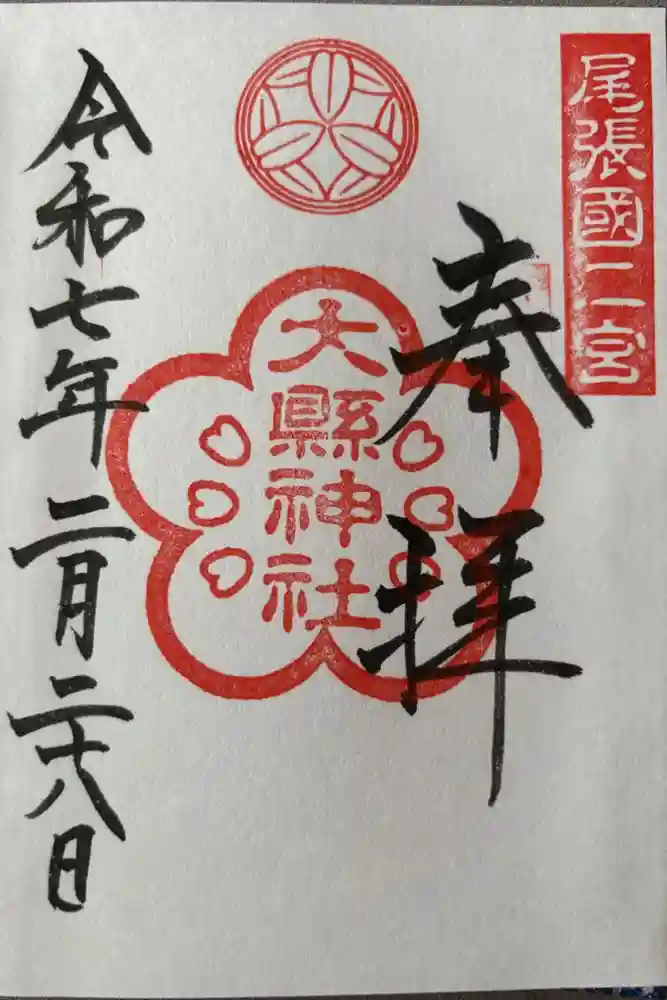 尾張國二宮
奉拝
大縣神社
令和七年二月二十八日